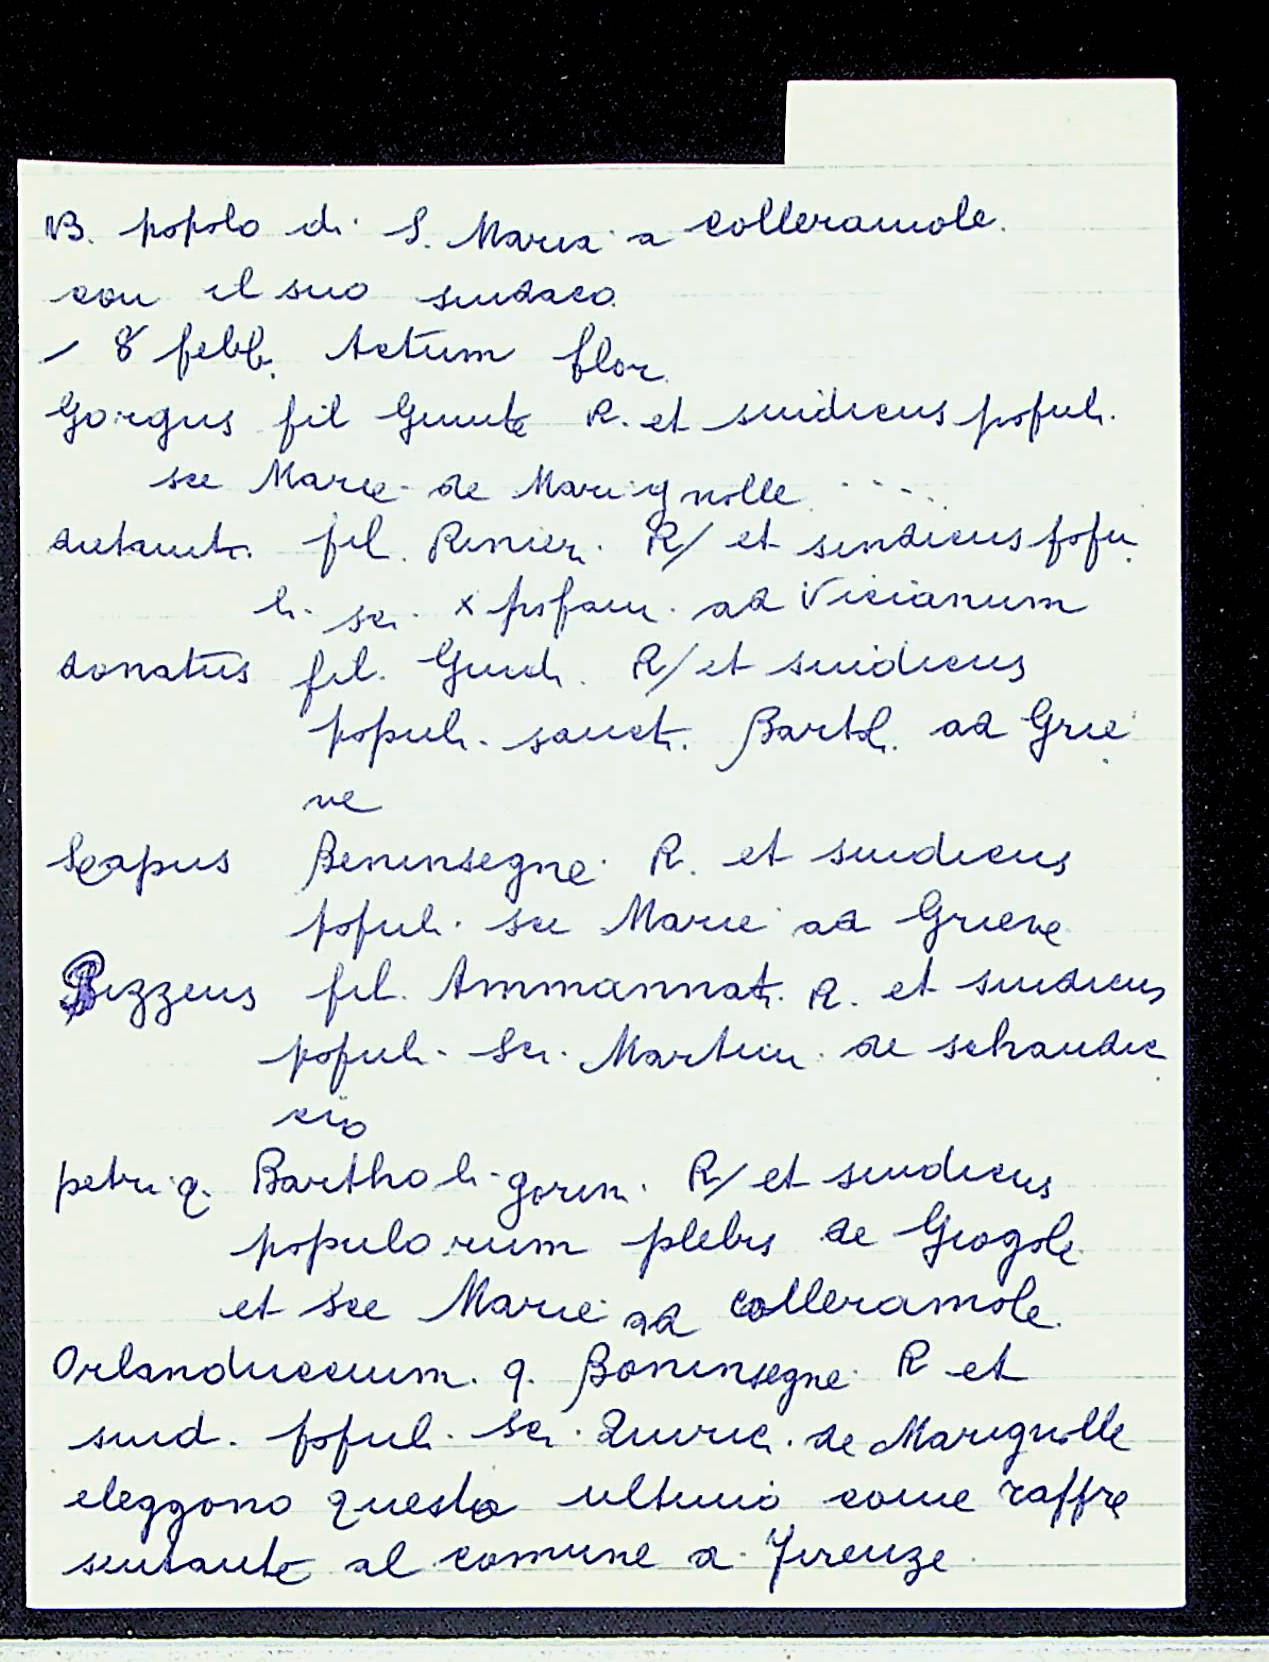 NB. popolo di S. Maria a Colleramole.
con il suo sindaco.
- 8 febb. Actum flor.
Gorgus fil Giunte R. et sindicus populi.
sce Marie de Marignolle .....
fil. Rinieri. R/ et sindicus popu
li. sci. xpofani. ad Vicianum
donatus fil. Guidi. R/ et sindicus
populi. sancti. Barthl. ad Grie
ve
Scapus Beninsegne. R. et sindicus
populi. sce Marie ad Grieve
Pizzeus fil. Ammannati. R. et sindicus
populi. Sci. Martini. de schandic
cio
petri q. Bartholi gorini. R/ et sindicus
populorum plebis de Giogole
et sce Marie ad Colleramole.
Orlanduccium. q. Boninsegne R et
sind. populi. Sci. Quirici. de Marignolle
eleggono questo ultimo come rappre
sentante al comune a Firenze.